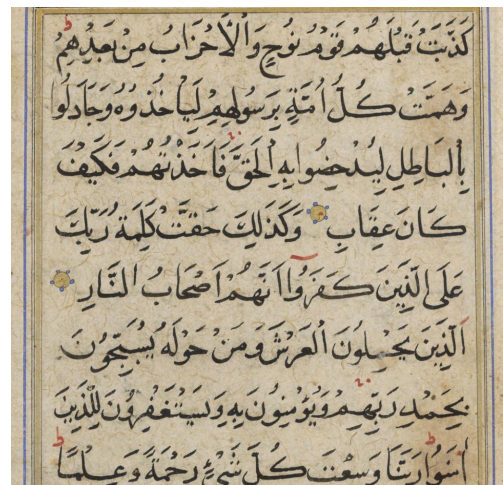 كَذَّبَتْ قَبْلَهُمْ قَوْمُ نُوحٍ وَالْأَحْزَابُ مِنْ بَعْدِهِمْ
وَهَمَّتْ كُلُّ أُمَّةٍ بِرَسُولِهِمْ لِيَأْخُذُوهُ وَجَادَلُوا
بِالْبَاطِلِ لِيُدْحِضُوا بِهِ الْحَقَّ فَأَخَذْتُهُمْ فَكَيْفَ
كَانَ عِقَابِ وَكَذَلِكَ حَقَّتْ كَلِمَةُ رَبِّكَ
عَلَى الَّذِينَ كَفَرُوا أَنَّهُمْ أَصْحَابُ النَّارِ
الَّذِينَ يَحْمِلُونَ الْعَرْشَ وَمَنْ حَوْلَهُ يُسَبِّحُونَ
بِحَمْدِ رَبِّهِمْ وَيُؤْمِنُونَ بِهِ وَيَسْتَغْفِرُونَ لِلَّذِينَ
آمَنُوا رَبَّنَا وَسِعْتَ كُلَّ شَيْءٍ رَحْمَةً وَعِلْمًا